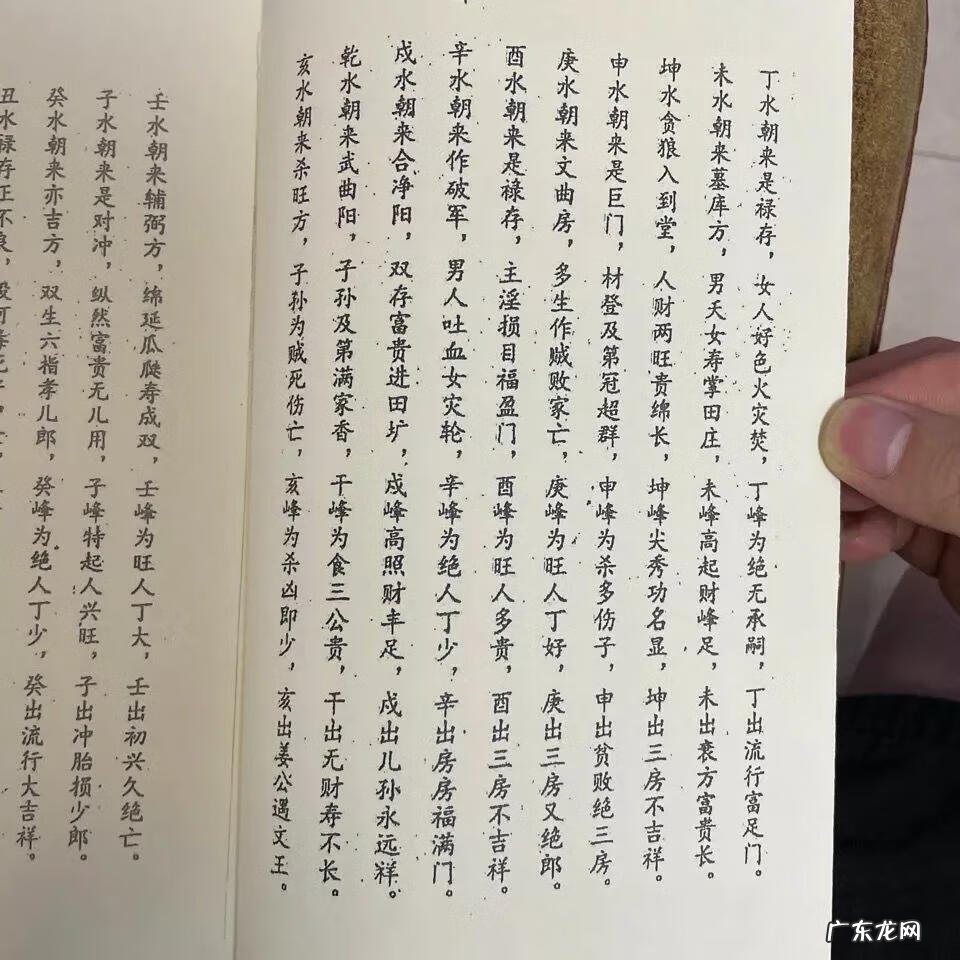 丁水朝来是禄存，女人好色火灾焚，丁峰为绝无承嗣，丁出流行富足门。
未水朝来墓库方，男夭女寿掌田庄，未峰高起财峰足，未出衰方富贵长。
坤水贪狼入到堂，人财两旺贵绵长，坤峰尖秀功名显，坤出三房不吉祥。
申水朝来是巨门，材登及第冠超群，申峰为杀多伤子，申出贫败绝三房。
庚水朝来文曲房，多生作贼败家亡，庚峰为旺人丁好，庚出三房又绝郎。
酉水朝来是禄存，主淫损目福盈门，酉峰为旺人多贵，酉出三房不吉祥。
辛水朝来作破军，男人吐血女灾轮，辛峰为绝人丁少，辛出房房福满门。
戍水朝来合净阳，双存富贵进田圹，戍峰高照财丰足，戍出儿孙永远祥。
乾水朝来武曲阳，子孙及第满家香，干峰为食三公贵，干出无财寿不长。
亥水朝来杀旺方，子孙为贼死伤亡，亥峰为杀凶即少，亥出姜公遇文王。
壬水朝来辅弼方，绵延瓜瓞寿成双，壬峰为旺人丁大，壬出初兴久绝亡。
子水朝来是对冲，纵然富贵无儿用，子峰特起人兴旺，子出冲胎损少郎。
癸水朝来亦吉方，双生六指孝儿郎，癸峰为绝人丁少，癸出流行大吉祥。
丑水禄存正不良，
广东龙网